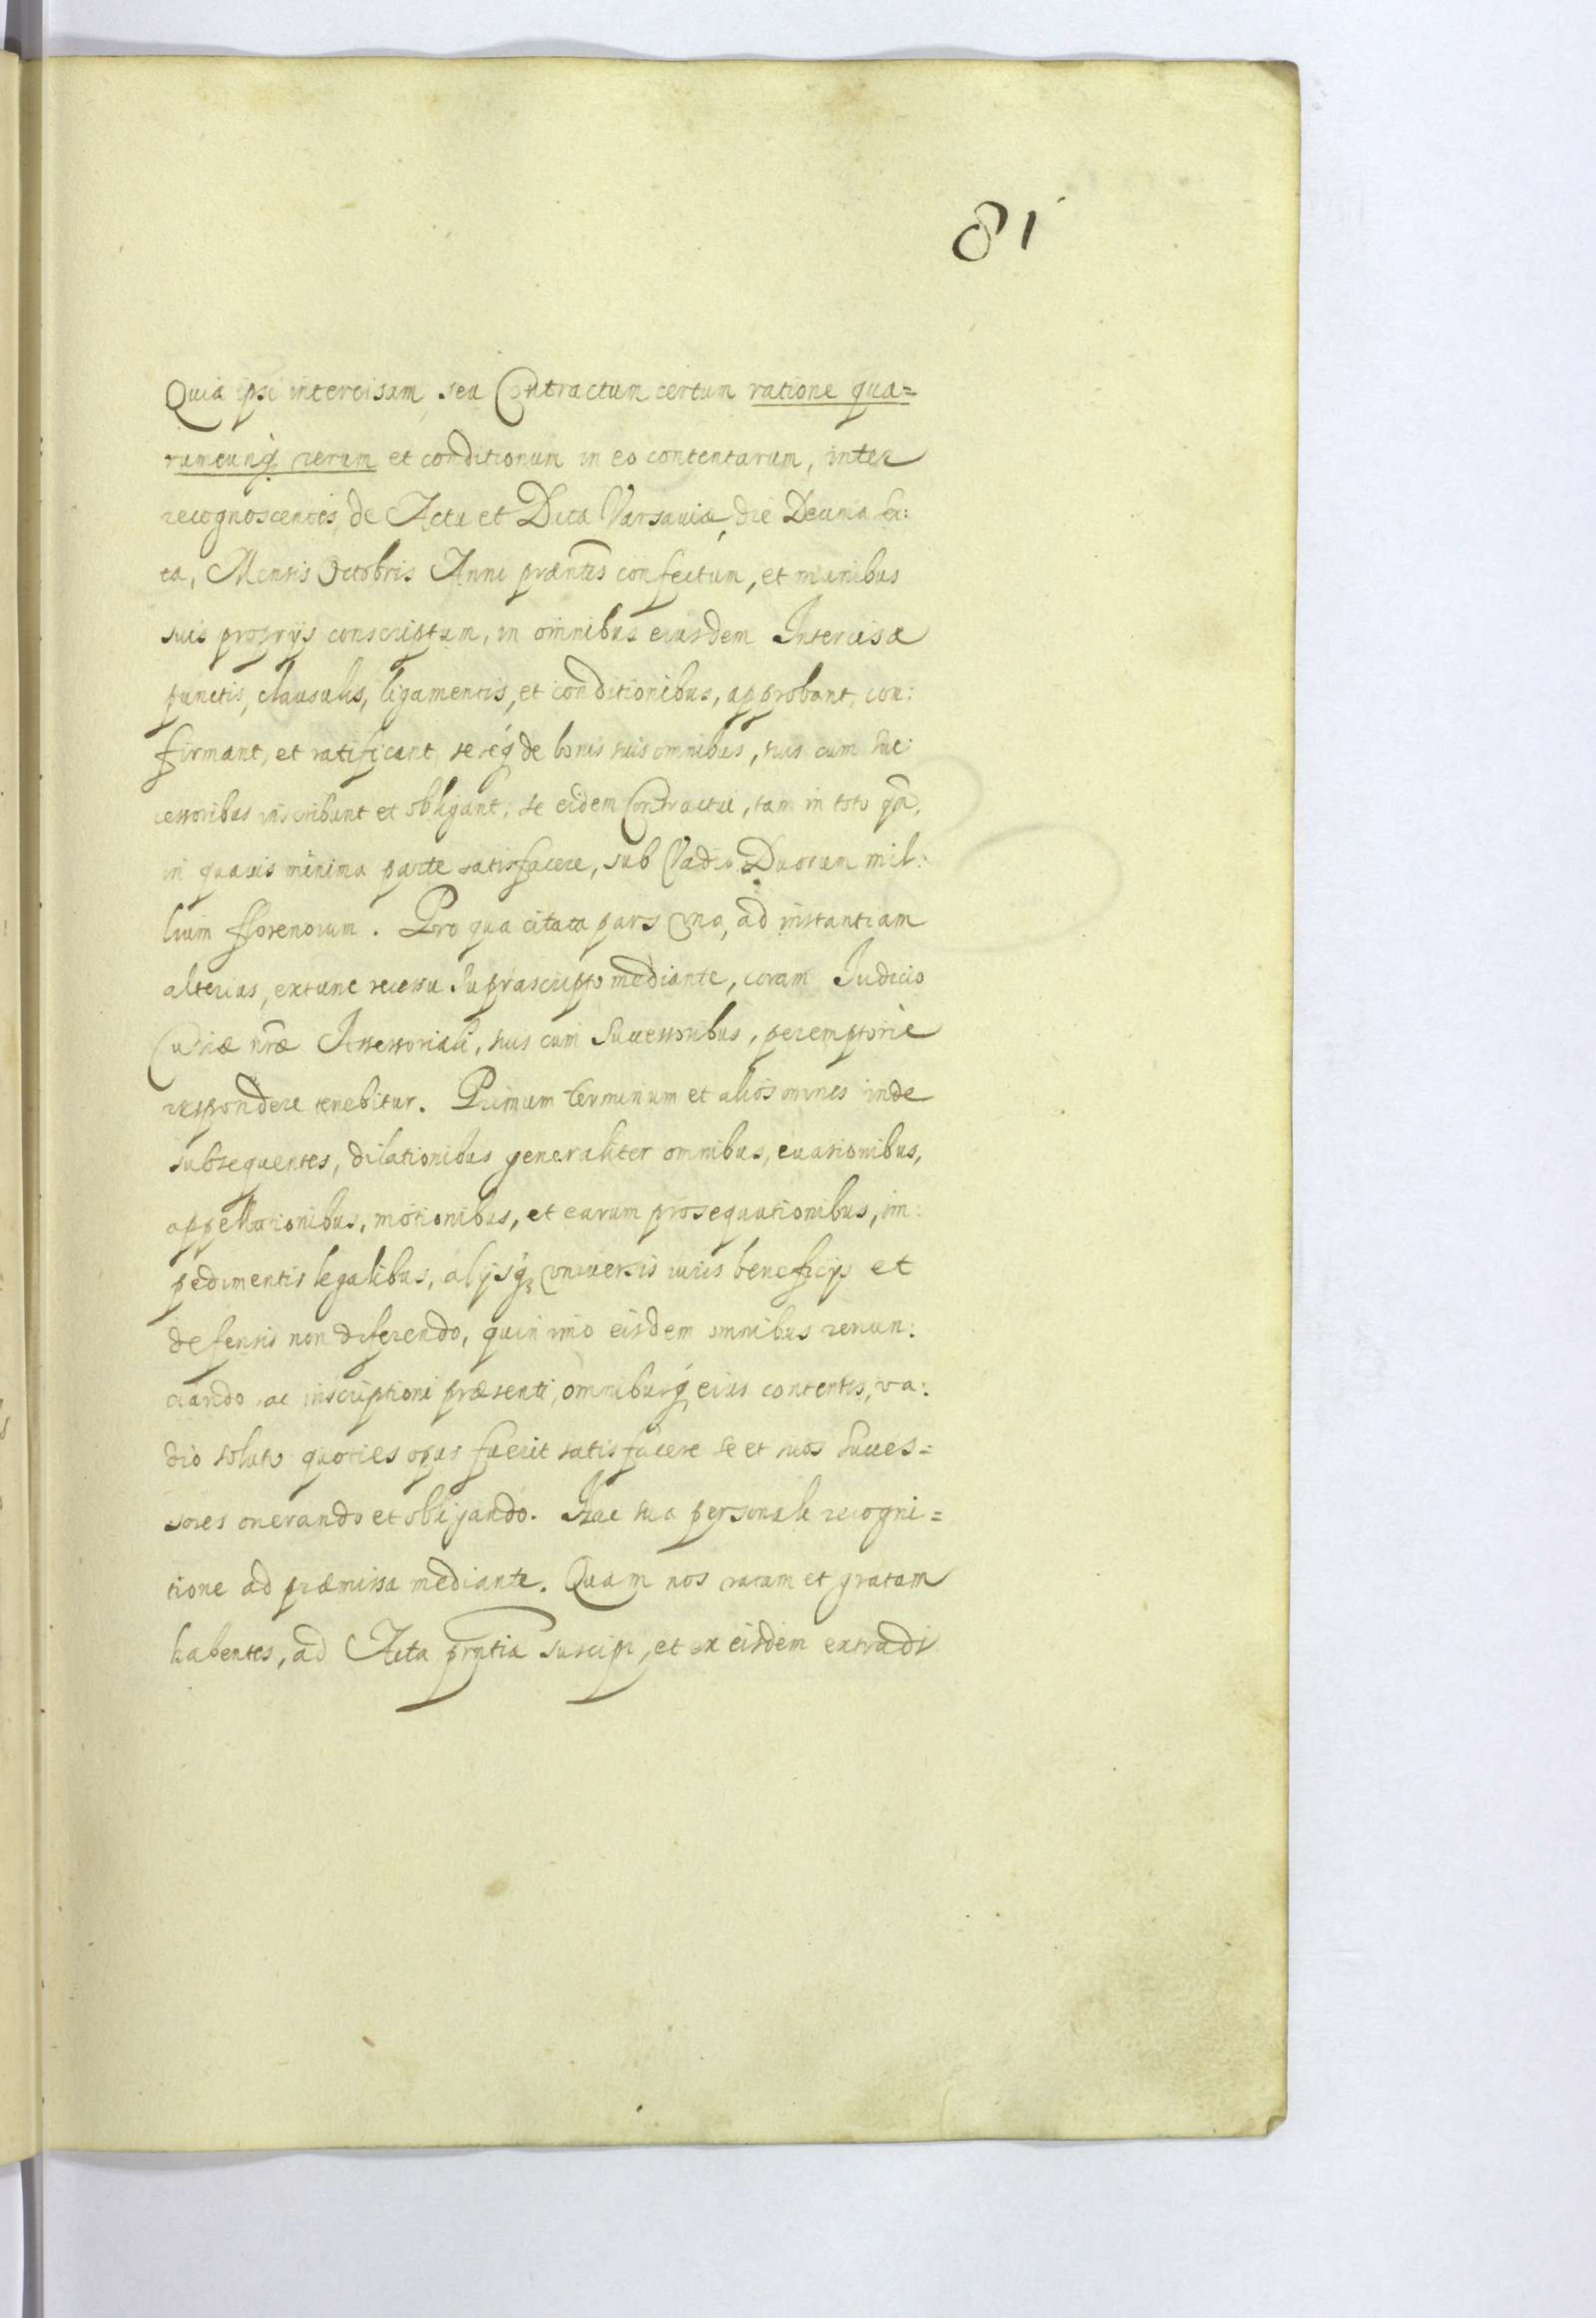 81
Quia ipsi intercisam seu Contractum certum ratione qua=
rumcunq̃ rerum et conditionum in eo contentarum, inter
recognoscentes, de Actu et Data Varsaviæ, die Decima sex:
ta, Mensis Octobris Anni præntis confectum, et manibus
suis proprijs conscriptum, in omnibus eiusdem Intercisæ
punctis, clausulis, ligamentis, et conditionibus, approbant, con:
firmant, et ratificant, seseq́ de bonis suis omnibus, suis cum suc:
cessoribus inscribunt et obligant; se eidem Contractui, tam in toto qm̃,
in quavis minima parte satisfacere, sub Vadio Duorum mil:
lium fflorenorum. Pro qua citata pars vna, ad instantiam
alterius, extunc recessu suprascripto mediante, coram Iudicio
Curiæ nr̃æ Assessoriali, suis cum Successoribus, peremptorie
respondere tenebitur. Primum terminum et alios omnes inde
subsequentes, dilationibus generaliter omnibus, euasionibus,
appellationibus, motionibus, et earum prosequutionibus, im:
pedimentis legalibus, alijsq́ vniuersis iuris beneficijs et
defensis non diferendo, quin imo eisdem omnibus renun:
ciando, ac inscriptioni præsenti, omnibusq́ eius contentis, va:
dio soluto quoties opus fuerit satisfacere se et suos succes=
sores onerando et obligando. Hac sua personali recogni=
tione ad præmissa mediante. Quam nos ratam et gratam
habentes, ad Acta prñtia suscipi, et ex eisdem extradi